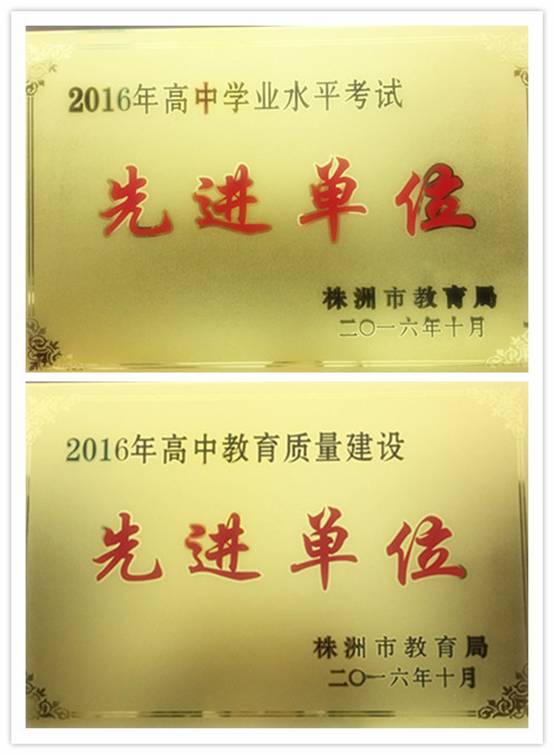 2016年高中学业水平考试
先进单位
株洲市教育局
二〇一六年十月
2016年高中教育质量建设
先进单位
株洲市教育局
二〇一六年十月